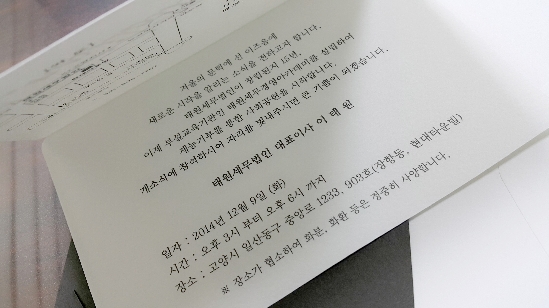 겨울의 문턱에 선 이즈음에
새로운 시작을 알리는 소식을 전하고자 합니다.
태원세무법인이 창립한지 15년,
이제 부설교육기관인 태원세무경영아카데미를 설립하여
재능기부를 통한 사회공헌을 시작합니다.
개소식에 참여하시어 자리를 빛내주시면 큰 기쁨이 되겠습니다.
태원세무법인 대표이사 이 태 원
일자 : 2014년 12월 9일 (화)
시간 : 오후 3시 부터 오후 6시 까지
장소 : 고양시 일산동구 중앙로 1233, 903호(장항동, 현대타운빌)
※ 장소가 협소하여 화분, 화환 등은 정중히 사양합니다.